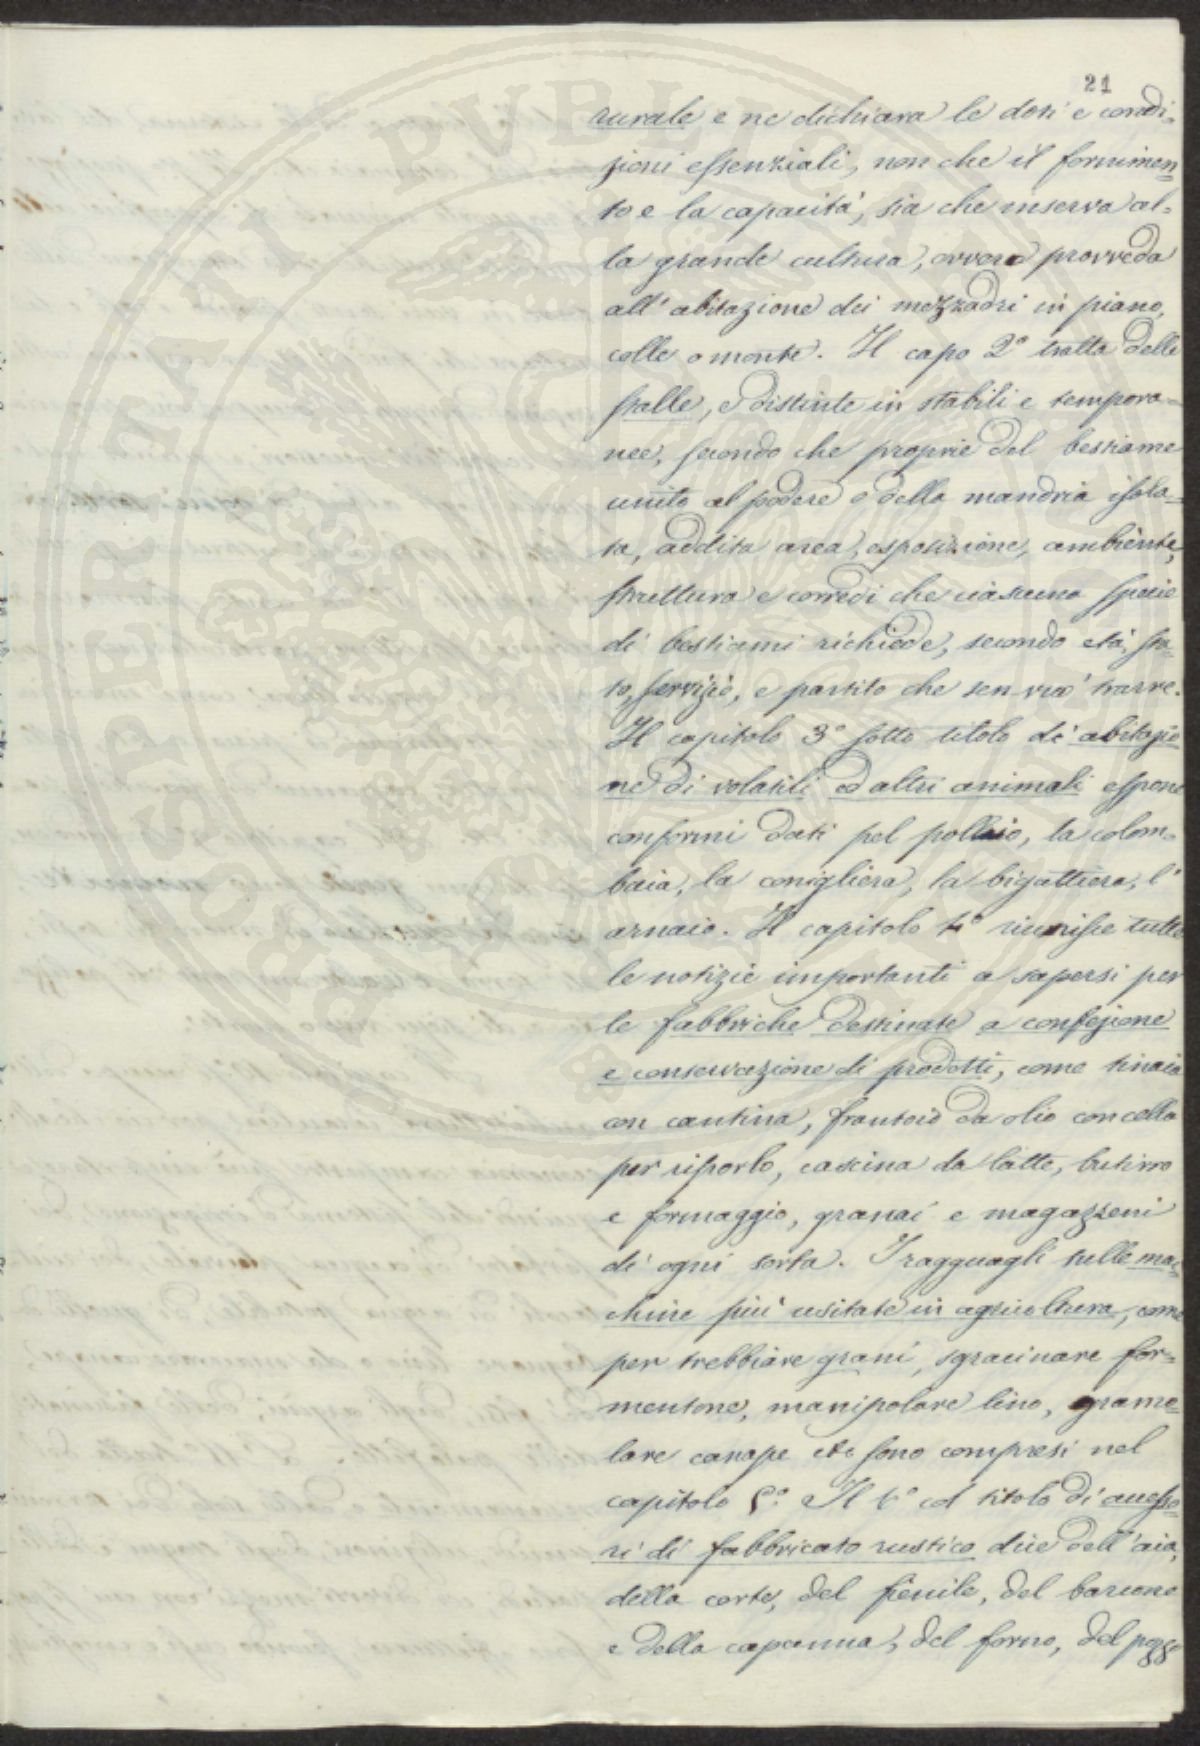 21
rurale e ne dichiara le doti e condi=
zioni essenziali, non che il fornimen=
to e la capacità, sia che inserva al=
la grande cultura, ovvero provveda
all'abitazione dei mezzadri in piano,
colle o monte. Il capo 2° tratta delle
stalle, e distinte in stabili e tempora=
nee, secondo che proprie del bestiame
unito al podere o della mandria isola=
ta, addita area, esposizione, ambiente,
struttura e corredi che ciascuna specie
di bestiami richiede, secondo età, sta=
to, servizio, e partito che sen vuol trarre.
Il capitolo 3° sotto titolo di abitazio
ne di volatili ed altri animali espone
conformi dati pel pollaio, la colom=
baia, la conigliera, la bigattiera, l'
arnaio. Il capitolo 4° riunisce tutte
le notizie importanti a sapersi per
le fabbriche destinate a confezione
e conservazione di prodotti, come tinaia
con cantina, frantoio da olio con cella
per riporlo, cascina da latte, butirro
e formaggio, granai e magazzeni
di ogni sorta. I ragguagli sulle mac=
chine più usitate in agricoltura, come
per trebbiare grani, sgracinare for=
mentone, manipolare lino, grame=
lare canape etc sono compresi nel
capitolo 5°. Il 6° col titolo di accesso=
ri di fabbricato rustico dice dell'aia,
della corte, del fienile, del barcone
e della capanna, del forno, del pozzo
PROSPERITATI PVBLICAE